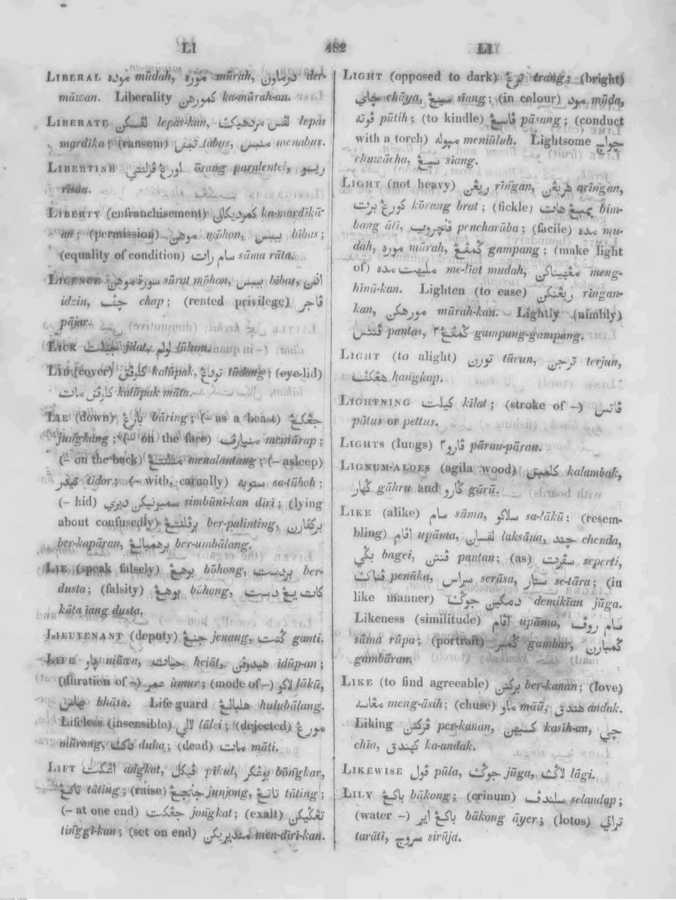 LI
482
LI
LIBERAL موده mūdah, موره mūrah, درماون der-
māwan. Liberality كمورهن ka-mūrah-an.
LIBERATE لڤسكن lepas-kan, لڤس مردهيك lepas
mardika; (ransom) تبس tabus, منبس menabus.
LIBERTINE اورڠ ūrang parlentei,
risau.
LIBERTY (enfranchisement) ka-mardikā-
an; (permission) موهن mōhon, ببس bibas;
(equality of condition) سام رات sāma rāta.
LICENCE سورة موهن sūrat mōhon, ببس bibas,
idzin, چڤ chap; (rented privilege) ڤاجر
pājar.
LICK جيلت jilat, lūlum.
LID (cover) كاتوڤق katūpak, تودڠ tūdung; (eye-lid)
كاتوڤق مات katūpak māta.
LIE (down) بارڠ bāring; (– as a beast)
jungkang; (– on the face) menīārap;
(– on the back) menalantang; (– asleep)
تيدر tīdor; (– with, carnally) ستوبه sa-tūboh;
(– hid) سمبونيكن ديري simbūni-kan dīri; (lying
about confusedly) برڤلنتڠ ber-palinting,
ber-kapāran, ber-umbālang.
LIE (speak falsely) بوهڠ būhong, بردست ber-
dusta; (falsity) بوهڠ būhong, كات يڠ دست
kāta iang dusta.
LIEUTENANT (deputy) جنڠ jenang, ڬنت ganti.
LIFE niāwa, حيات heiāt, idūp-an;
(duration of –) عمر umur; (mode of –) لاكو lākū,
bhāsa. Life guard hulubālang.
Lifeless (insensible) لالي lālei; (dejected) مورڠ
mūrang, دوك duka; (dead) مات māti.
LIFT اڠكت angkat, ڤيكل pikul, بوڠكر bōngkar,
تاتڠ tāting; (raise) جنجڠ junjong, تاتڠ tāting;
(– at one end) جڠكت jongkat; (exalt)
tinggī-kan; (set on end) منديريكن men-dīrī-kan.
LIGHT (opposed to dark) ترڠ trang; (bright)
چهاي chāya, سيڠ siang; (in colour) مود mūda,
ڤوته pūtih; (to kindle) ڤاسڠ pāsang; (conduct
with a torch) menūluh. Lightsome
chuwācha, سيڠ siang.
LIGHT (not heavy) ريڠن ringan, هريڠن aringan,
كورڠ برت kūrang brat; (fickle) بمبڠ هات bim-
bang āti, pencharūba; (facile) مده mu-
dah, موره mūrah, ڬمڤڠ gampang; (make light
of) me-liat mudah, meng-
hinā-kan. Lighten (to ease) ريڠنكن ringan-
kan, مورهكن mūrah-kan. Lightly (nimbly)
ڤنتس pantas, ڬمڤڠ٢ gampang-gampang.
LIGHT (to alight) تورن tūrun, ترجن terjun,
hangkap.
LIGHTNING كيلت kilat; (stroke of –) ڤاتس
pātus or pettus.
LIGHTS (lungs) ڤارو٢ pārau-pāran.
LIGNUM-ALOES (agila wood) كلمبق kalambak,
ڬهارو gāhru and ڬارو gārū.
LIKE (alike) سام sāma, سلاكو sa-lākū; (resem-
bling) اڤام upāma, لقسان laksāna, چند chenda,
بڬي bagei, ڤنتن pantun; (as) سڤرت seperti,
penāka, سراس serāsa, ستار se-tāra; (in
like manner) دمكين جوڬ demikian jūga.
Likeness (similitude) اڤام upāma, سام روڤ
sāma rūpa; (portrait) ڬمبر gambar, ڬمبارن
gambāran.
LIKE (to find agreeable) بركنن ber-kanan; (love)
مڠاسه meng-āsih; (chuse) ماو māū, هندق andak.
Liking ڤركنن per-kanan, كسيهن kasih-an, چي
chīa, كهندق ka-andak.
LIKEWISE ڤول pūla, جوڬ jūga, لاڬ lāgi.
LILY باكڠ bākong; (crinum) سلندڤ selandap;
(water –) باكڠ اير bākong āyer; (lotos) تراتي
tarāti, سروج sirūja.